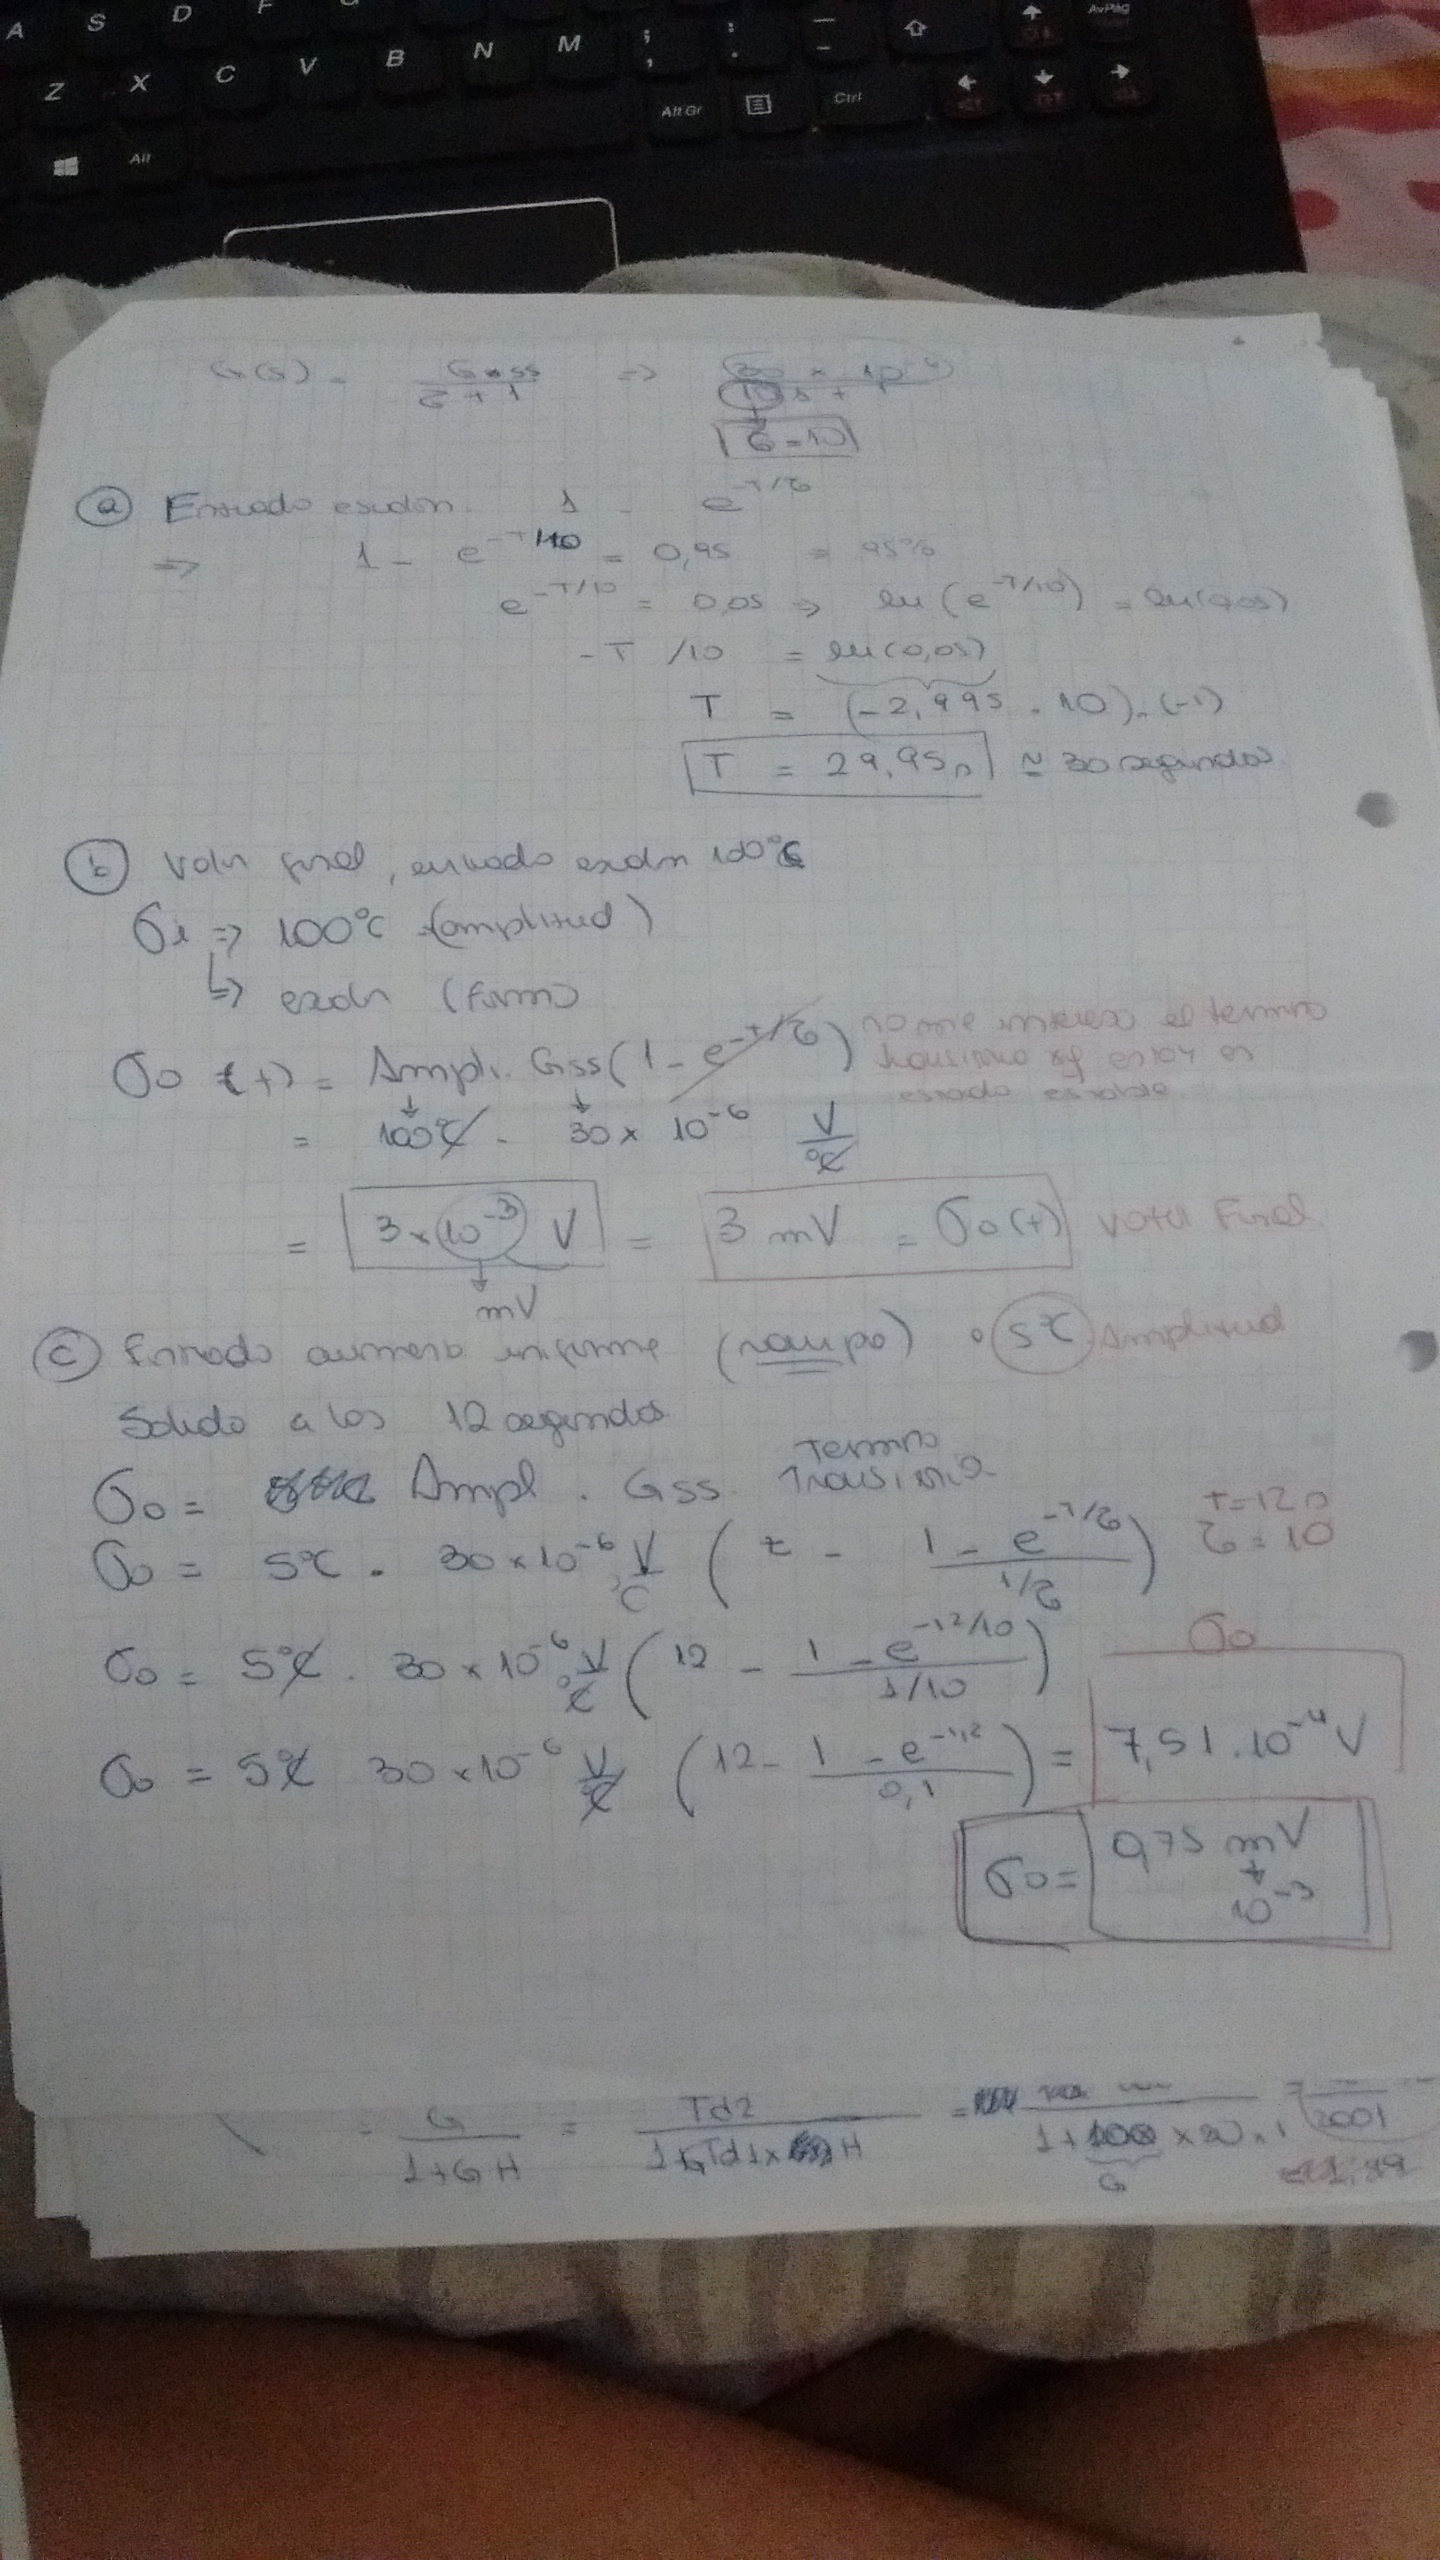 A S D F G
Z X C V B N M ; , : . _ - ⇧ ↑ AvPág
Alt Alt Gr Ctrl ← ↓ →
G(s) = Gss / τ + 1 => 30 x 10^-6 / 10 s + 1
τ = 10
a) Entrada escalon. 1 - e^-T/τ
=> 1 - e^-T/10 = 0,95 = 95%
e^-T/10 = 0,05 => ln (e^-T/10) = ln(0,05)
-T /10 = ln(0,05)
T = (-2,995 . 10) . (-1)
T = 29,95s ≃ 30 segundos
b) Valor final, entrada escalon 100°C
σi => 100°C (amplitud)
↳ escalon (forma)
σo (t) = Ampli. Gss (1 - e^-T/τ) no me interesa el termino
transitorio xq estoy en
estado estable.
= 100°C . 30 x 10^-6 V/°C
= 3 x 10^-3 V = 3 mV = σo(t) Valor Final
mV
c) Entrada aumento uniforme (rampa) 5°C Amplitud
Salida a los 12 segundos
σo = Ampl . Gss. Termino Transitorio
σo = 5°C . 30 x 10^-6 V/°C ( t - 1 - e^-T/τ / 1/τ ) t = 12 s
τ = 10
σo = 5°C . 30 x 10^-6 V/°C ( 12 - 1 - e^-12/10 / 1/10 ) σo
σo = 5°C 30 x 10^-6 V/°C ( 12 - 1 - e^-1,2 / 0,1 ) = 7,51 . 10^-4 V
σo = 0,75 mV
10^-3
= G / 1 + G H = Td2 / 1 + Td1 x H = 1 + 100 x 20 . 1 = 2001
G 1,99